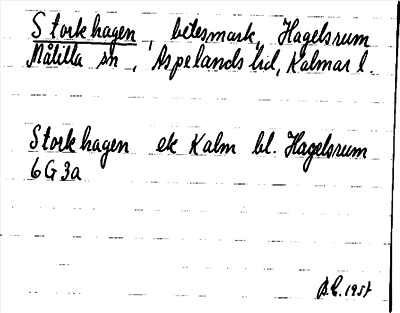 Storkhagen, betesmark, Hagelsrum
Målilla sn, Aspelands hd, Kalmar l.
Storkhagen ek Kalm bl. Hagelsrum
6G3a